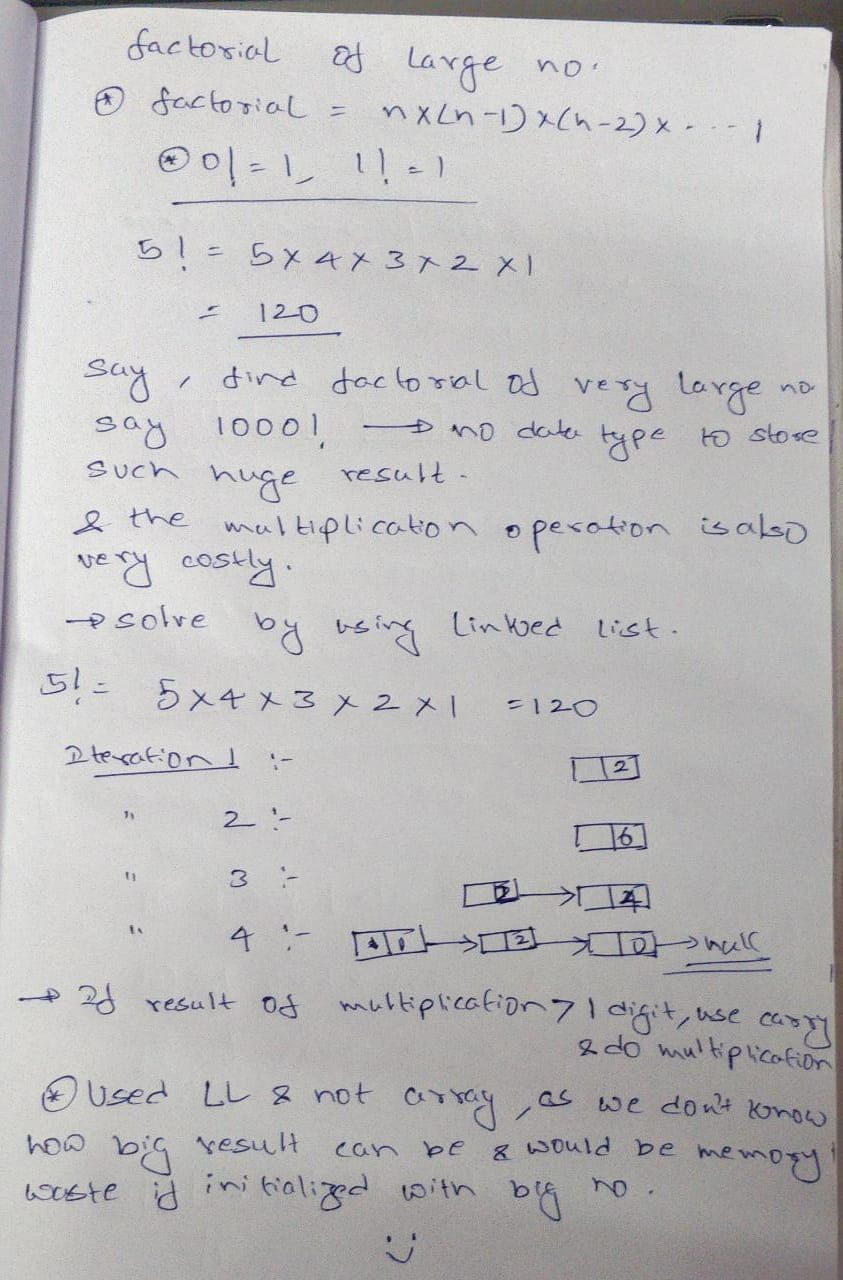 factorial of Large no.
⊛ factorial = n×(n-1)×(n-2)×---- 1
⊛ 0! = 1, 1! = 1
5! = 5 × 4 × 3 × 2 × 1
= 120
say, find factorial of very large no
say 1000! → no data type to store
such huge result.
& the multiplication operation is also
very costly.
→ solve by using linked list.
5! = 5×4×3×2×1 = 120
Iteration 1 :- 2
" 2 :- 6
" 3 :- 2 → 4
" 4 :- 1 → 2 → 0 → null
→ If result of multiplication > 1 digit, use carry
& do multiplication
⊛ Used LL & not array, as we don't know
how big result can be & would be memory
waste if initialized with big no.